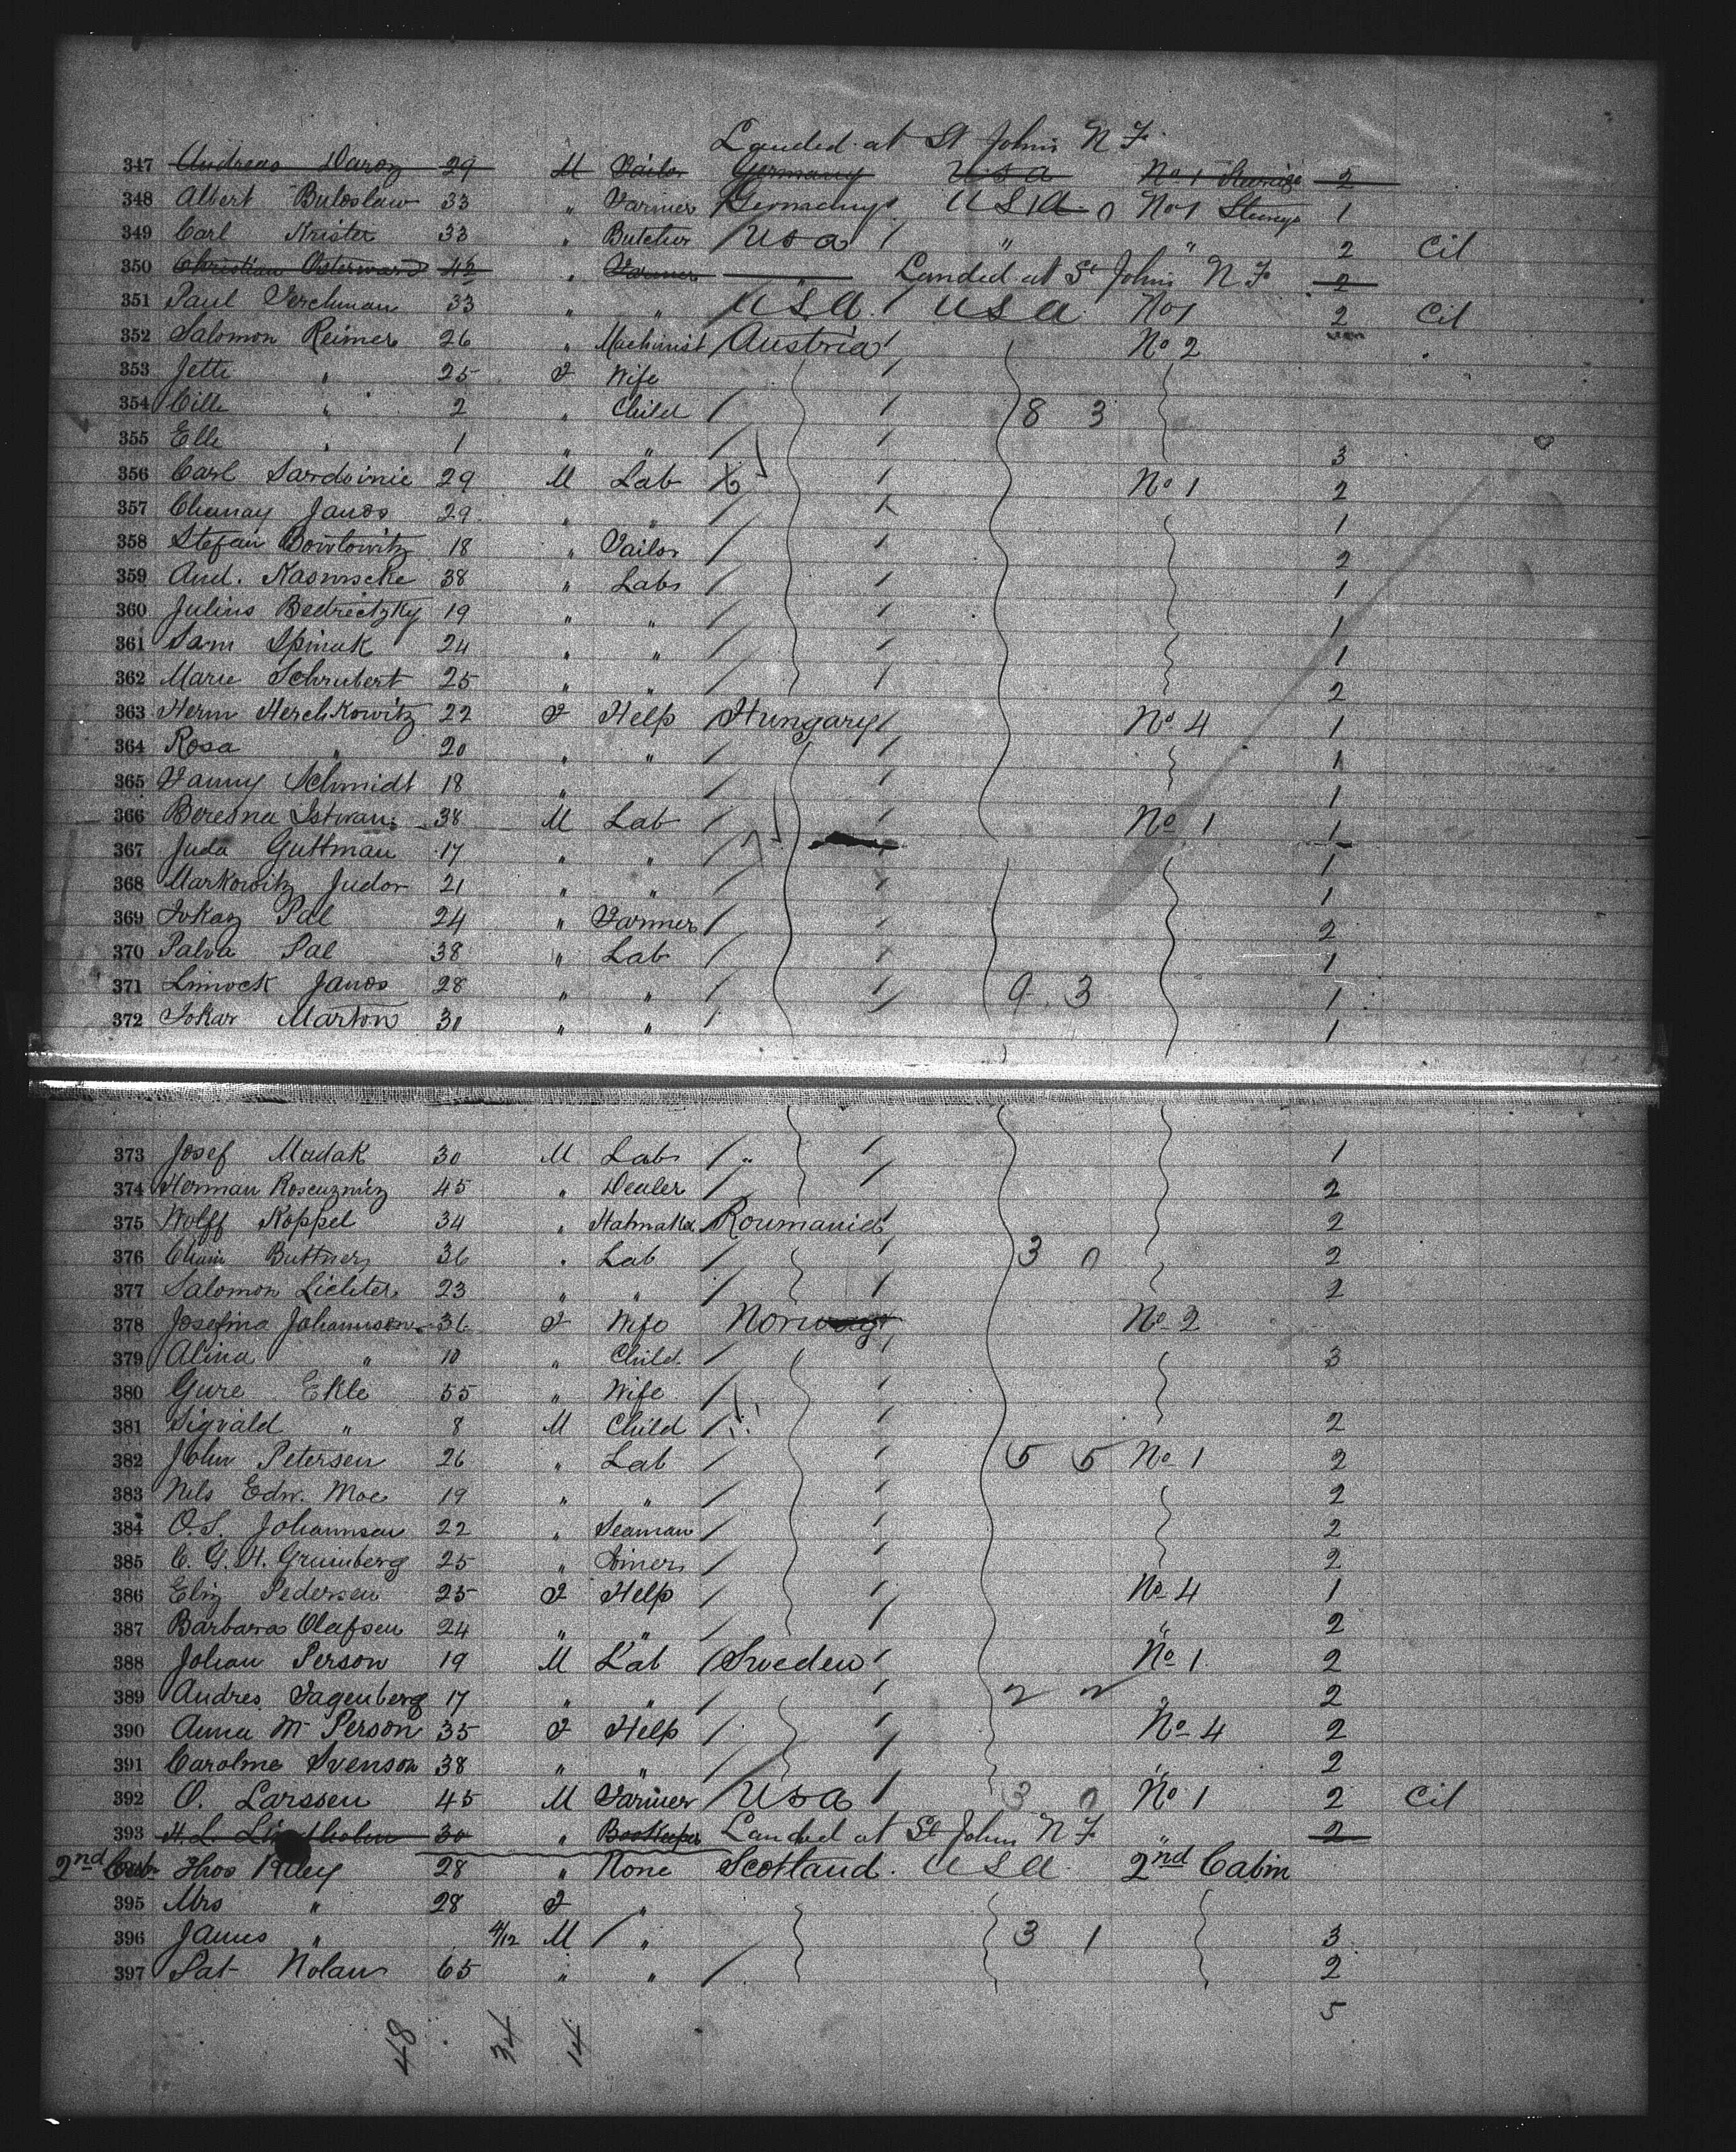 Landed at St Johns N F.
347 Andreas 29 M Tailor Germany U S A No 1 Steerage 2
348 Albert Buloslaw 33 " Farmer Germany U S A 0 No 1 Steerge 1
349 Carl Krister 33 " Butcher U S A " " 2 Cit
350 Christian Osterward 42 " Farmer Landed at St Johns N F 2
351 Paul Ferchman 33 " " U.S.A. U S A No 1 2 Cit
352 Salomon Reimer 26 " Machinist Austria No 2
353 Jette " 25 F Wife
354 Cille " 2 " Child 8 3
355 Elle " 1 " " 3
356 Carl Sardsinie 29 M Lab No 1 2
357 Chanay Janos 29 " " 1
358 Stefan Bowlowitz 18 " Tailor 2
359 And. Kasmscke 38 " Labr 1
360 Julius Bedrietzky 19 " " 1
361 Sam Spinak 24 " " 1
362 Marie Schrubert 25 " " 2
363 Herm Herchkowitz 22 F Help Hungary No 4 1
364 Rosa " 20 " " 1
365 Fanny Schmidt 18 " 1
366 Beresna Istwan 38 M Lab No 1 1
367 Juda Guttman 17 " " 1
368 Markowitz Judor 21 " " 1
369 Jokaz Pal 24 " Farmer 2
370 Palva Pal 38 " Lab 1
371 Limock Janos 28 " " 9 3 1
372 Jokar Marton 30 " " 1
373 Josef Madak 30 M Labr " 1
374 Herman 45 " Dealer 2
375 Wolff Koppel 34 " Hatmaker Roumania 2
376 Chaim Buttner 36 " Lab 3 0 2
377 Salomon Lichter 23 " " 2
378 Josefina Johannson 36 F Wife Norway No 2
379 Alina " 10 " Child 3
380 Gure Ekle 55 " Wife
381 Sigvald " 8 M Child 2
382 John Petersen 26 " Lab 5 5 No 1 2
383 Nils Edw. Moe 19 " " 2
384 O.S. Johannsen 22 " Seaman 2
385 C. G. H. Grunberg 25 " Joiner 2
386 Eliz Pedersen 25 F Help No 4 1
387 Barbara Olafsen 24 " " " 2
388 Johan Person 19 M Lab Sweden No 1 2
389 Andres Fagenberg 17 " " 2 2 " 2
390 Anna M Person 35 F Help No 4 2
391 Caroline Svenson 38 " " " 2
392 O. Larssen 45 M Farmer U S A 3 0 No 1 2 Cit
393 H. L. 30 " Bookkeeper Landed at St John N F " 2
2nd Cab Thos Riley 28 " None Scotland. U S A. 2nd Cabin
395 Mrs " 28 F "
396 James " 4/12 M " 3 1 3
397 Pat Nolan 65 " " 2
5
48 34 14